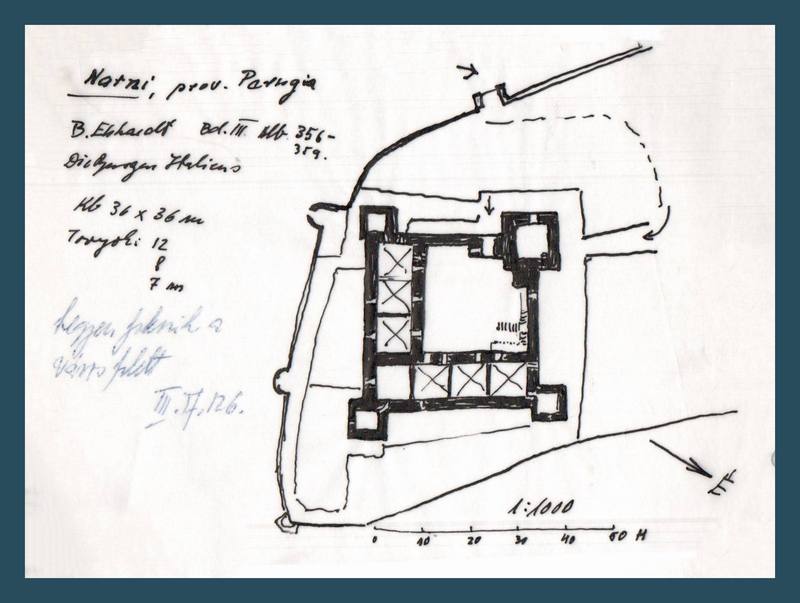 Narni, prov. Parugia
B. Ebhardt Bd. III. Abb. 356-
359.
Die Burgen Italiens
Kb 36 x 36 m
Tornyok: 12
8
7 m
hegyen fekvik a
város felett
III. 17. 126.
1:1000
0 10 20 30 40 50 M